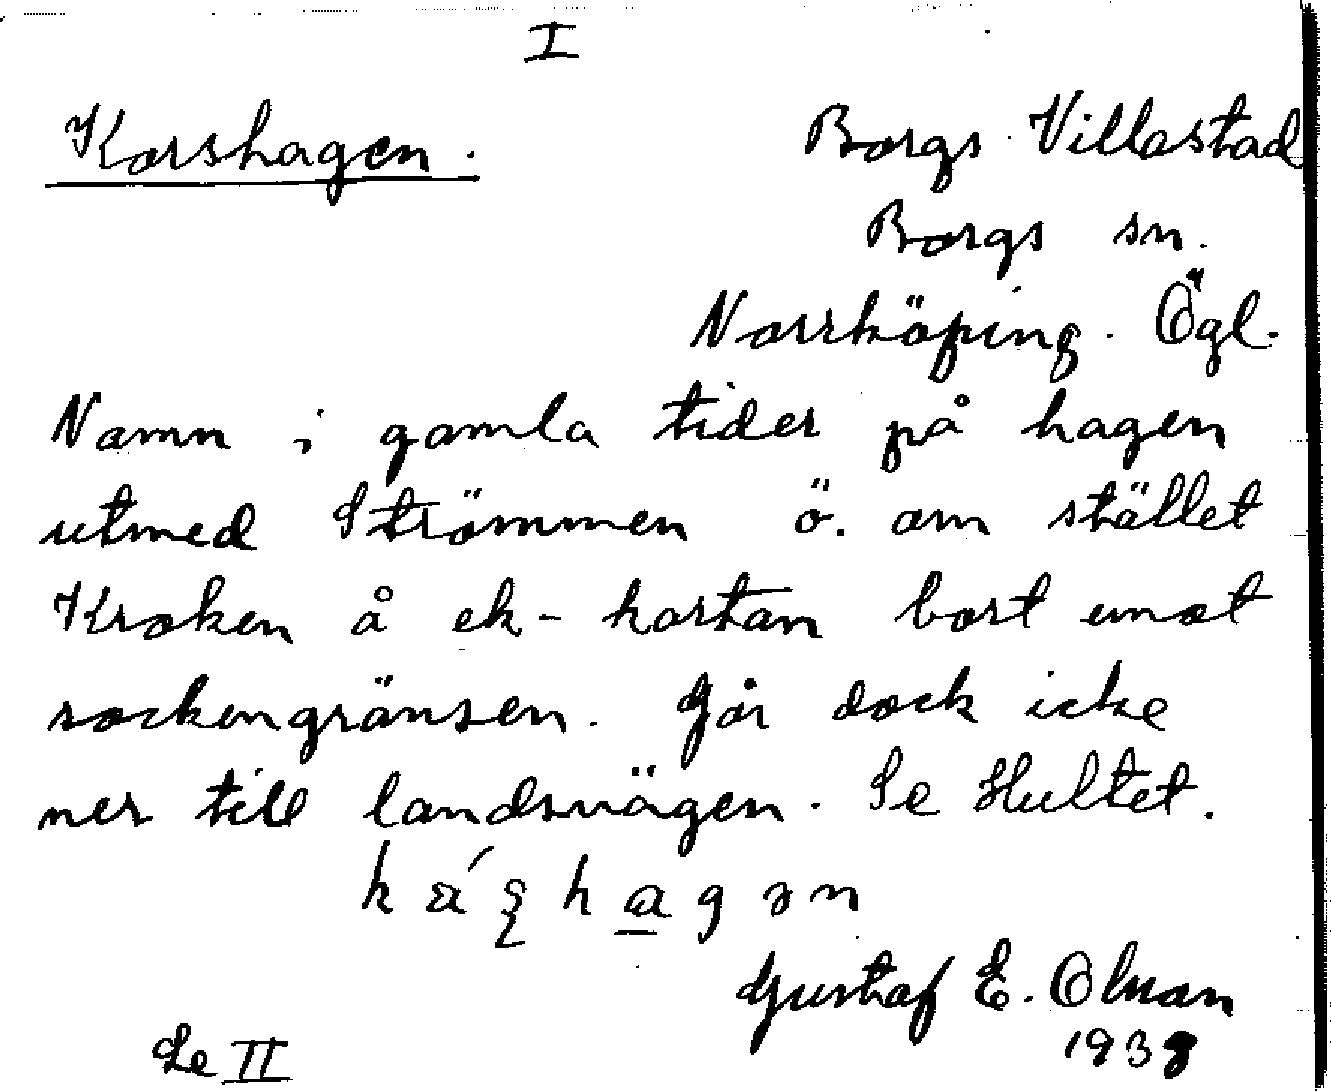 I
Korshagen.
Borgs Villastad
Borgs sn.
Norrköping. Ögl.
Namn i gamla tider på hagen
utmed Strömmen ö. om stället
Kroken å ek-kartan bort emot
sockengränsen. Går dock icke
ner till landsvägen. Se Hultet.
Gustaf E. Olsson
Se II